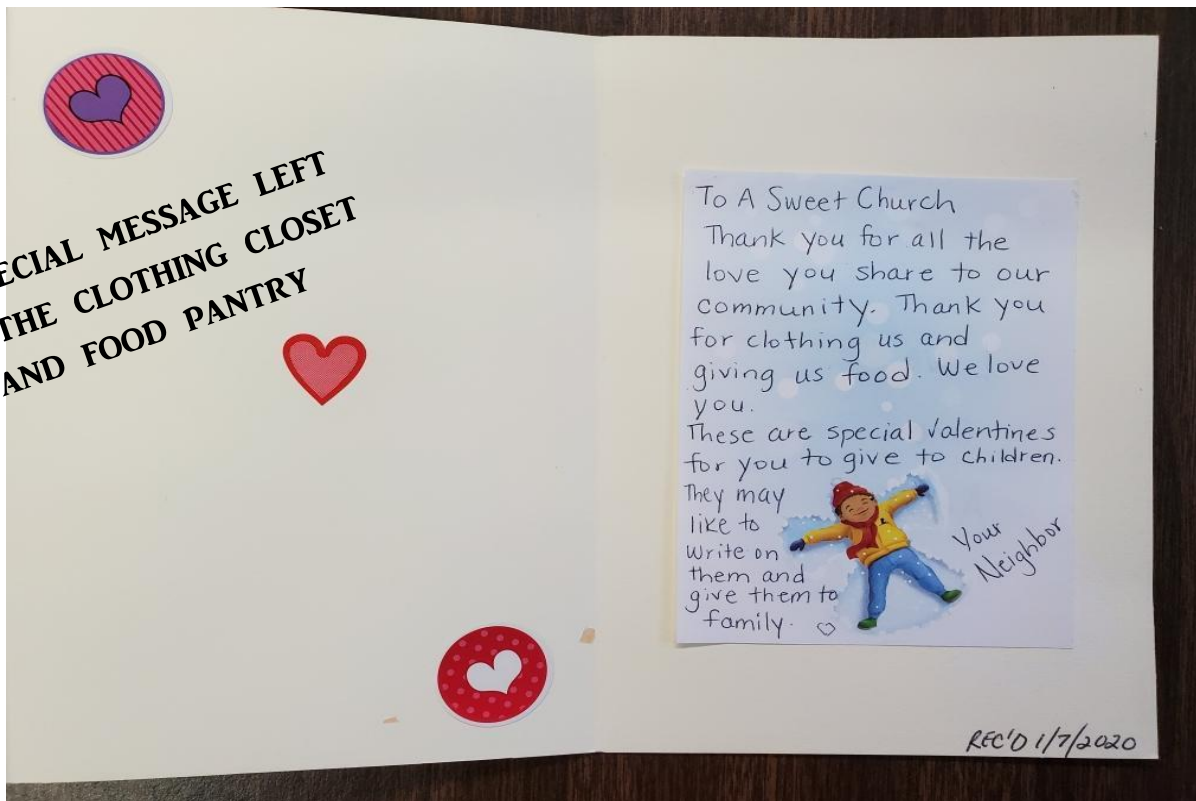 ECIAL MESSAGE LEFT
THE CLOTHING CLOSET
AND FOOD PANTRY
To A Sweet Church
Thank you for all the
love you share to our
community. Thank you
for clothing us and
giving us food. We love
you.
These are special Valentines
for you to give to children.
They may
like to
write on
them and
give them to
family.
Your
Neighbor
REC'D 1/7/2020